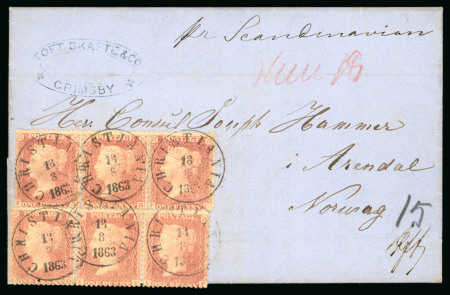 TOFT SKAFTE & CO
GRIMSBY
pr Scandinavian
Herr Consul Joseph Hammer
i Arendal
Norway
15
CHRISTIANIA
18
8
1863
CHRISTIANIA
18
8
1863
CHRISTIANIA
18
8
CHRISTIANIA
18
8
1863
CHRISTIANIA
18
8
1863
CHRISTIANIA
18
8
1863